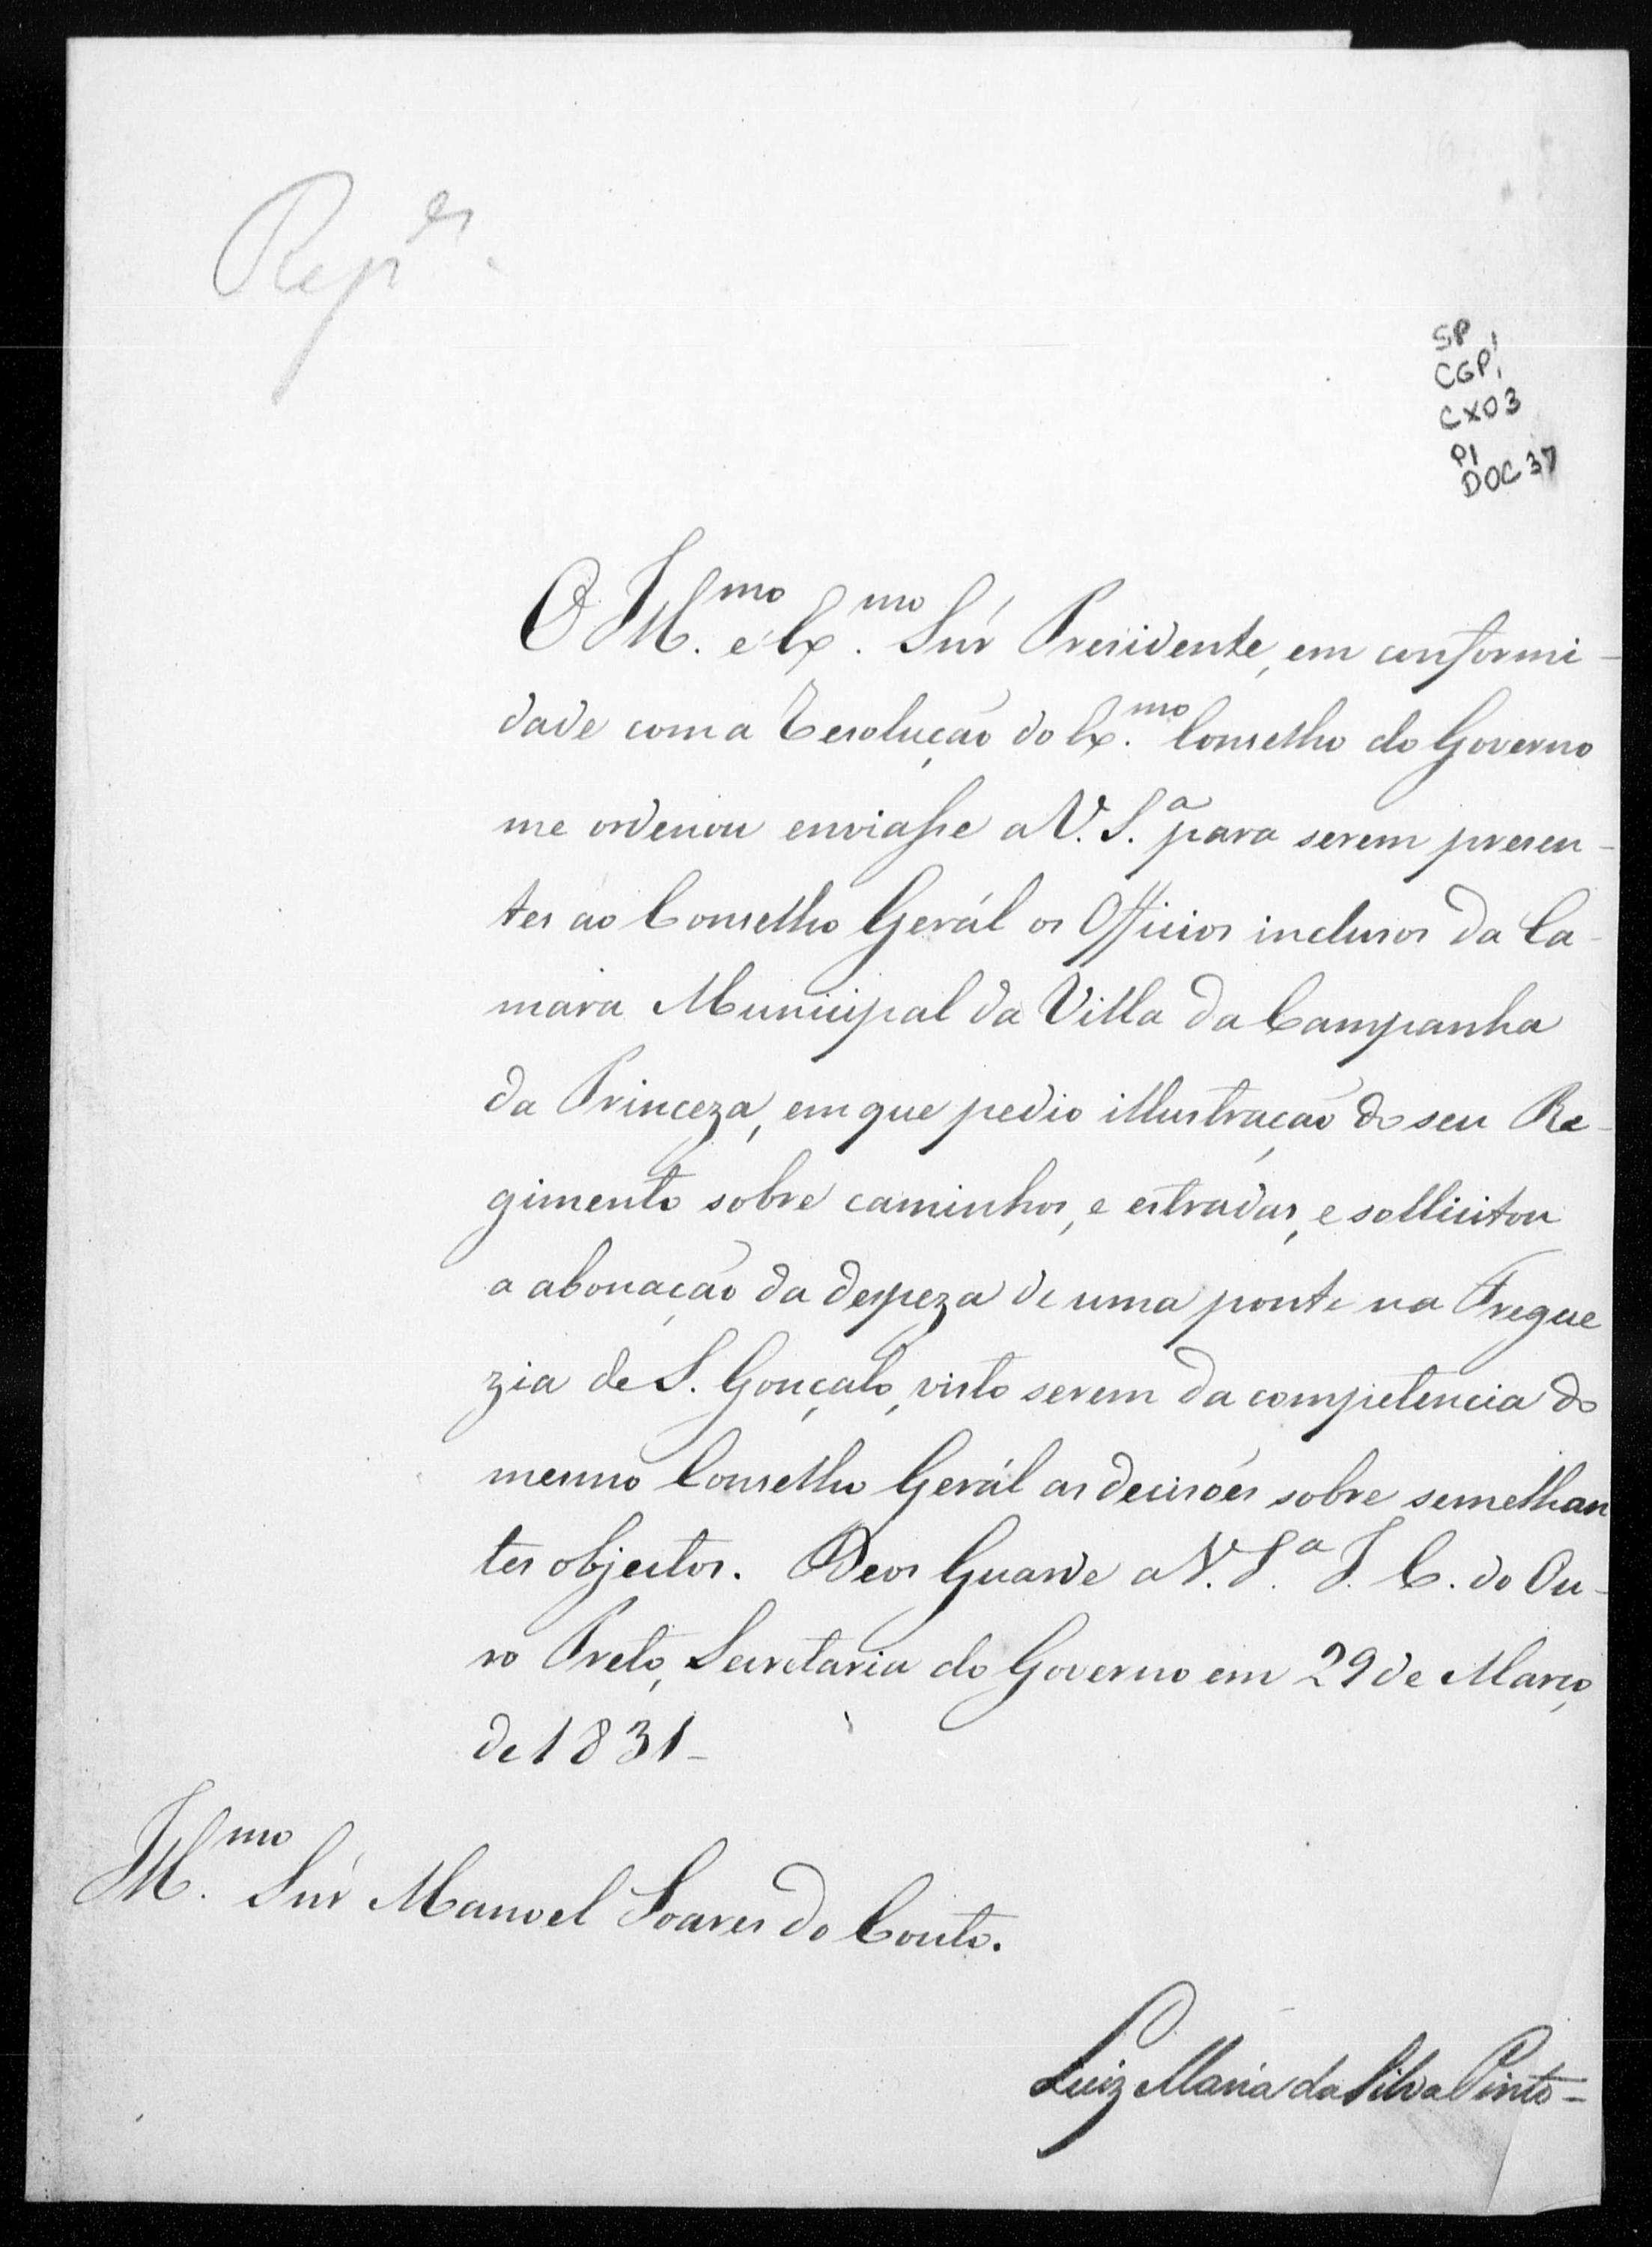 Rep.es
SP
CGP1
CX03
P1
DOC 37
O Ill.mo e Ex.mo Snr Presidente, em conformi-
dade com a Resolução do Ex.mo Conselho do Governo
me ordenou enviasse a V. S.a para serem presen-
tes ao Conselho Gerál os Officios inclusos da Ca-
mara Municipal da Villa da Campanha
da Princeza, em que pedio illustração do seu Re-
gimento sobre caminhos, e estradas, e sollicitou
a abonação da despeza de uma ponte na Fregue
zia de S. Gonçalo, visto serem da competencia do
mesmo Conselho Gerál as decisões sobre semelhan
tes objectos. Deos Guarde a V. S.a I. C. do Ou-
ro Preto, Secretaria do Governo em 29 de Março
de 1831-
Ill.mo Snr Manoel Soares do Couto.
Luiz Maria da Silva Pinto=